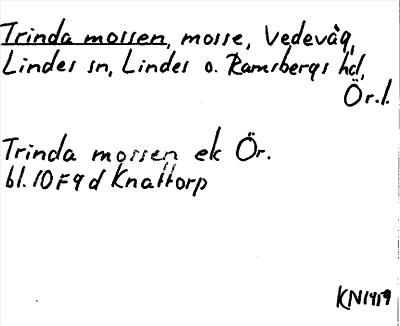 Trinda mossen, mosse, Vedevåg,
Lindes sn, Lindes o. Ramsbergs hd,
Ör.l.
Trinda mossen ek Ör.
bl. 10F9d Knattorp
KN1919